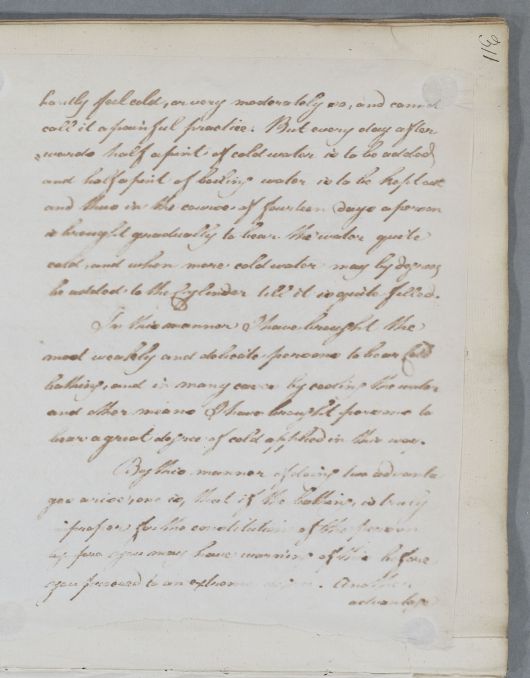 116
hardly feel cold, or very moderately so, and cannot
call it a painful practice. But every day after
wards half a pint of cold water is to be added
and half a pint of boiling water is to be kept out
and thus in the course of fourteen days a person
is brought gradually to bear the water quite
cold, and when more cold water may by degrees
be added to the Cylinder till it is quite filled.
In this manner I have brought the
most weakly and delicate persons to bear Cold
bathing, and in many cases by cooling the water
and other means I have brought persons to
bear a great degree of cold applied in this way.
By this manner of doing two advanta
ges arise, one is, that if the bathing is truly
improper for the constitution of the person
you may have warning of it before
you proceed to an extreme Another
advantage